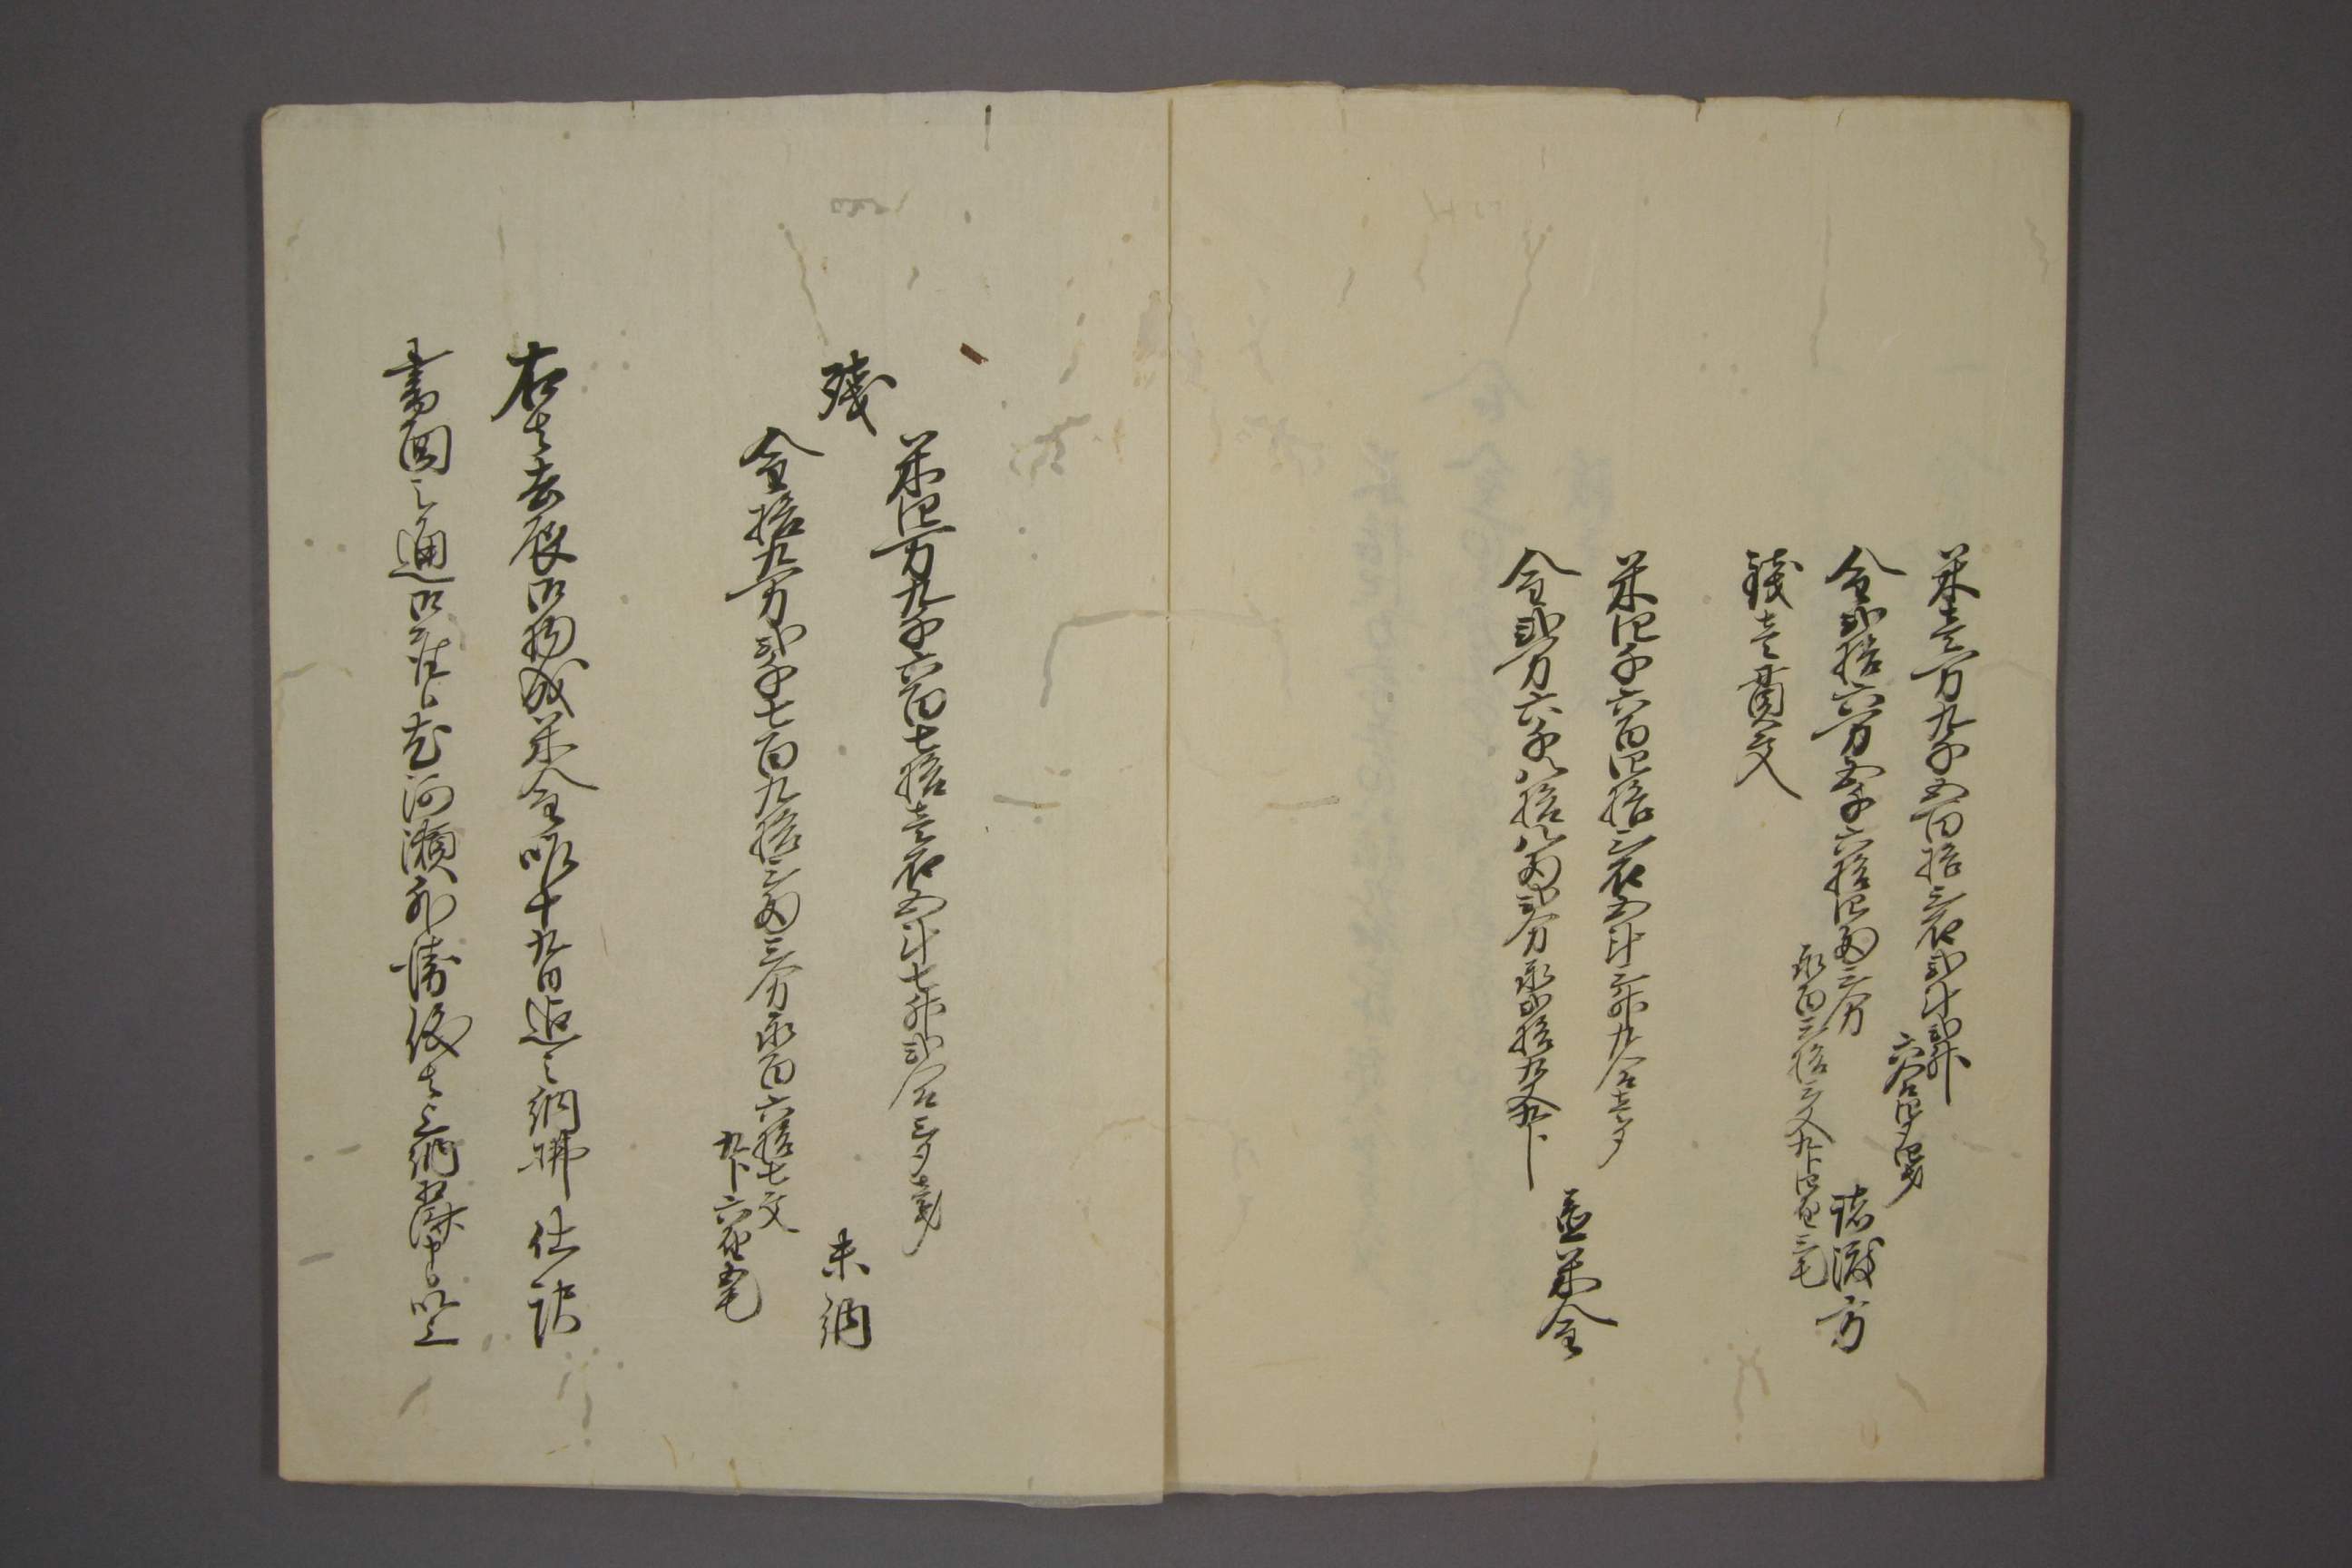 米壱万九千五百拾三石弐斗弐升
六合四夕四才
金弐拾六万五千六拾四両三分
永百三拾三文九分四厘三毛
諸渡方
銭壱貫文
米四千六百四拾三石五斗三升九合壱夕
金弐万六千八拾八両弐分永弐拾九文九分
置米金
残
米四万九千六百七拾壱石五斗七升弐合三夕壱才
金拾九万弐千七百九拾三両三分永百六拾七文
九分六厘五毛
未納
右者去辰御物成米金昨十九日迄之納払仕訳
書面之通御座候尤河瀬外清後者上納皆済申候以上